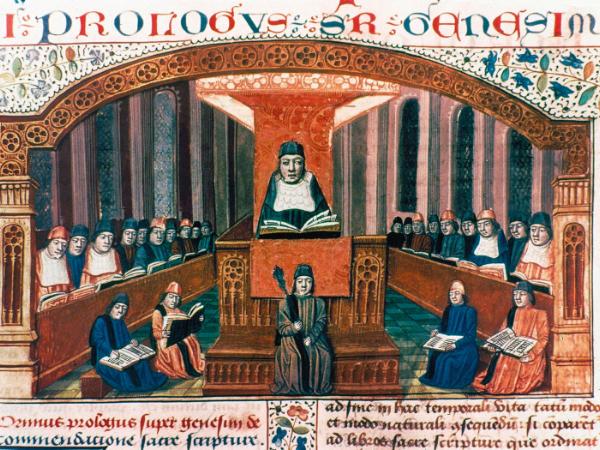 PROLOGVS SR GENESIM
Primus prologus super genesim de
commendatione sacre scripture.
ad fine in hac temporali vita tatū modo
et modo naturali ꝯsequēdū: si coparet
ad libros sacre scripture que ordinat